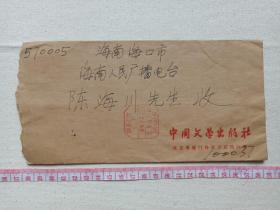 570005
海南海口市
海南人民广播电台
陈海川先生 收
中国文学出版社
100037